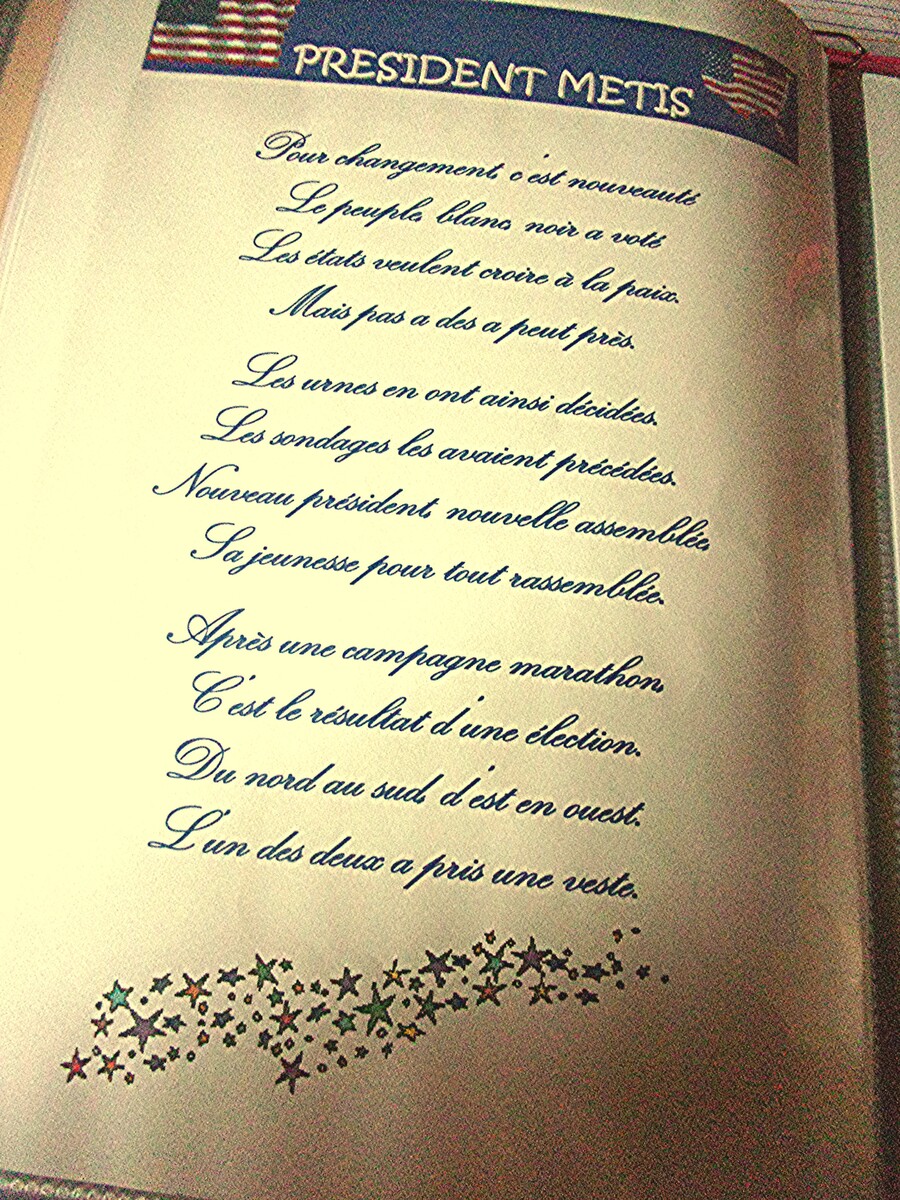 PRESIDENT METIS
Pour changement, c'est nouveauté
Le peuple, blanc, noir a voté
Les états veulent croire à la paix.
Mais pas a des a peut près.
Les urnes en ont ainsi décidées.
Les sondages les avaient précédées.
Nouveau président, nouvelle assemblée,
Sa jeunesse pour tout rassemblée.
Après une campagne marathon,
C'est le résultat d'une élection.
Du nord au sud, d'est en ouest.
L'un des deux a pris une veste.